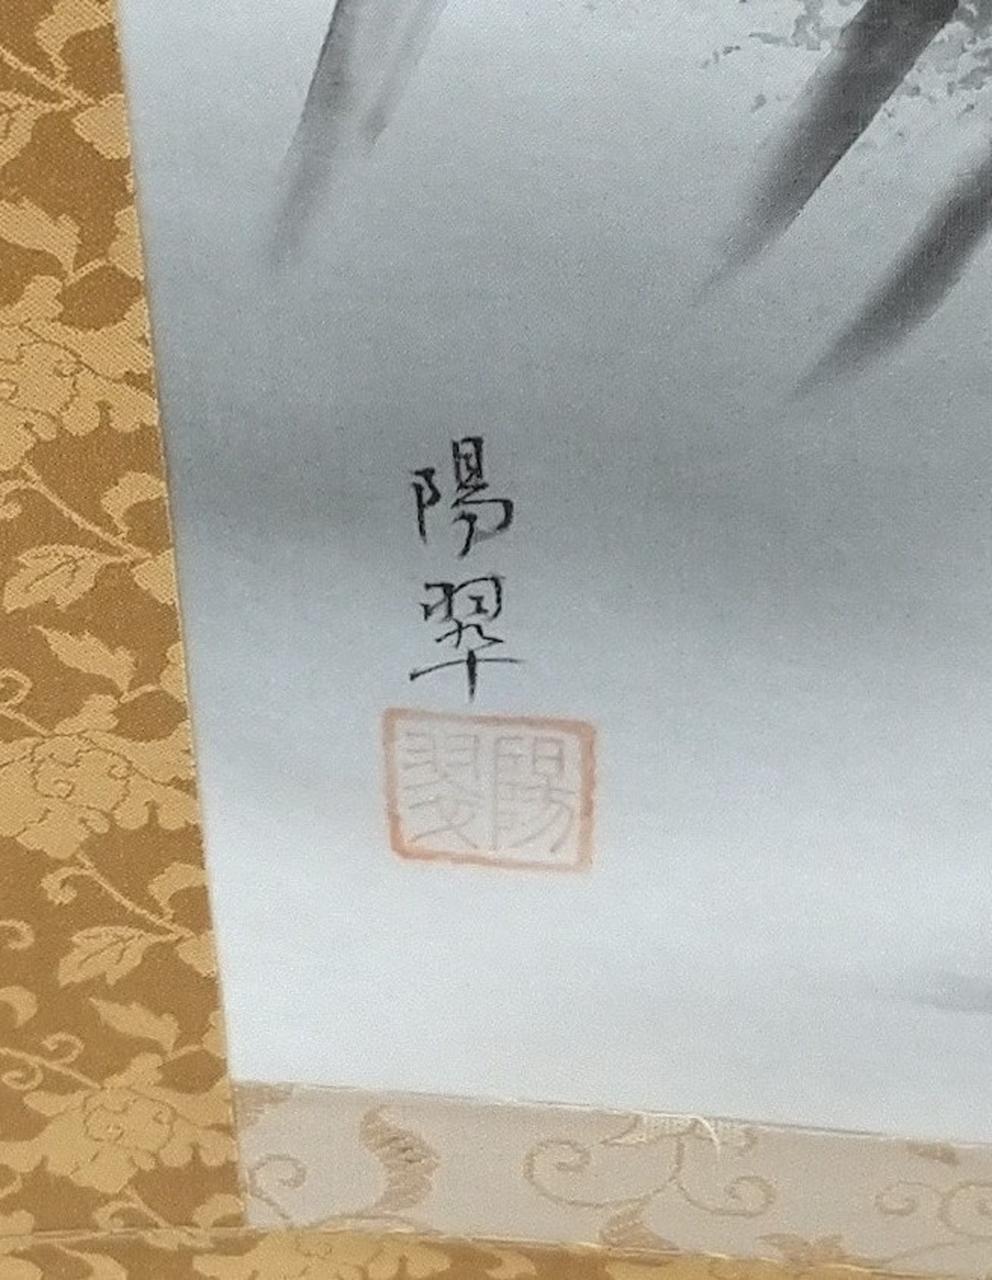 陽
翠
陽翠